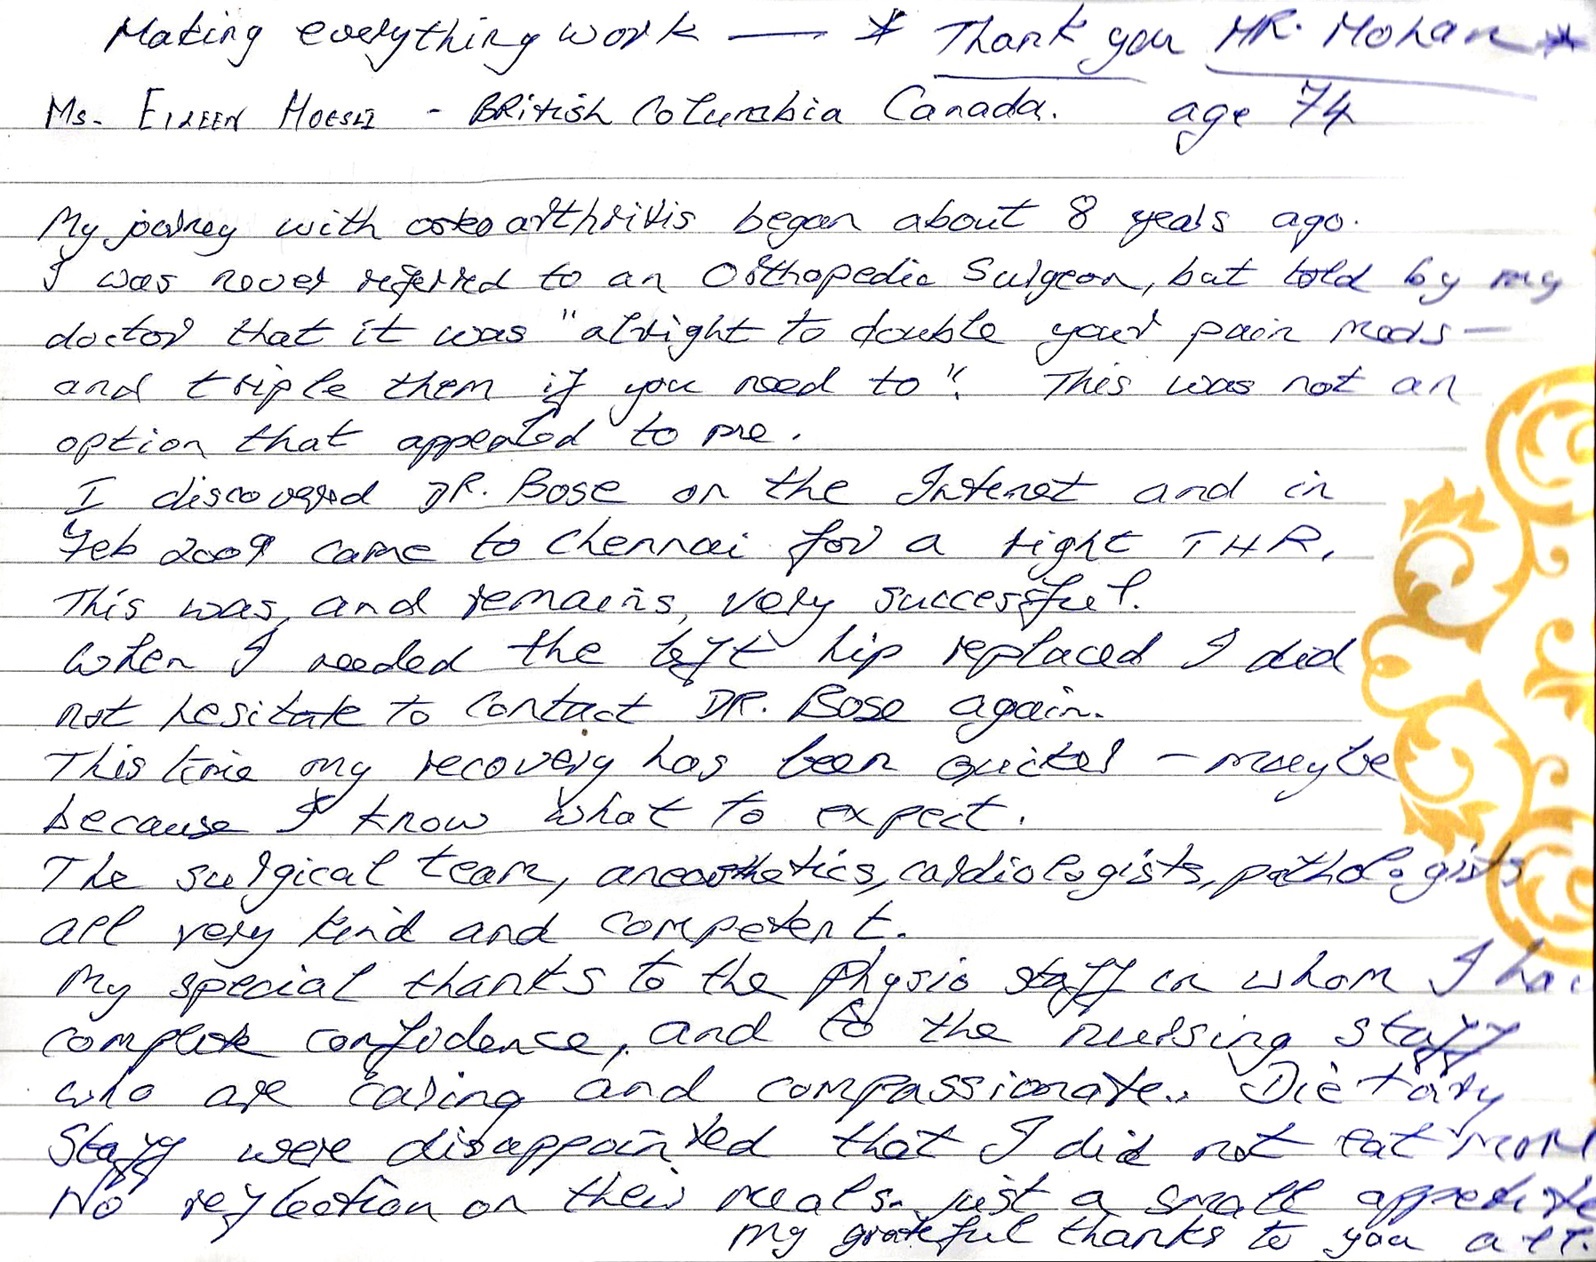 Making everything work — * Thank you MR. Mohan *
Ms. EILEEN - British Columbia Canada. age 74
My journey with osteoarthritis began about 8 years ago.
I was never referred to an Orthopedic Surgeon, but told by my
doctor that it was "alright to double your pain meds —
and triple them if you need to". This was not an
option that appealed to me.
I discovered DR. Bose on the Internet and in
Feb 2009 came to Chennai for a right THR.
This was, and remains, very successful.
When I needed the left hip replaced I did
not hesitate to contact DR. Bose again.
This time my recovery has been quicker — maybe
because I know what to expect.
The surgical team, cardiologists, pathologists
all very kind and competent.
My special thanks to the physio staff in whom I ha
complete confidence, and to the nursing staff
who are caring and compassionate. Dietary
Staff were disappointed that I did not eat more
No reflection on their meals - just a small appetite
My grateful thanks to you all.